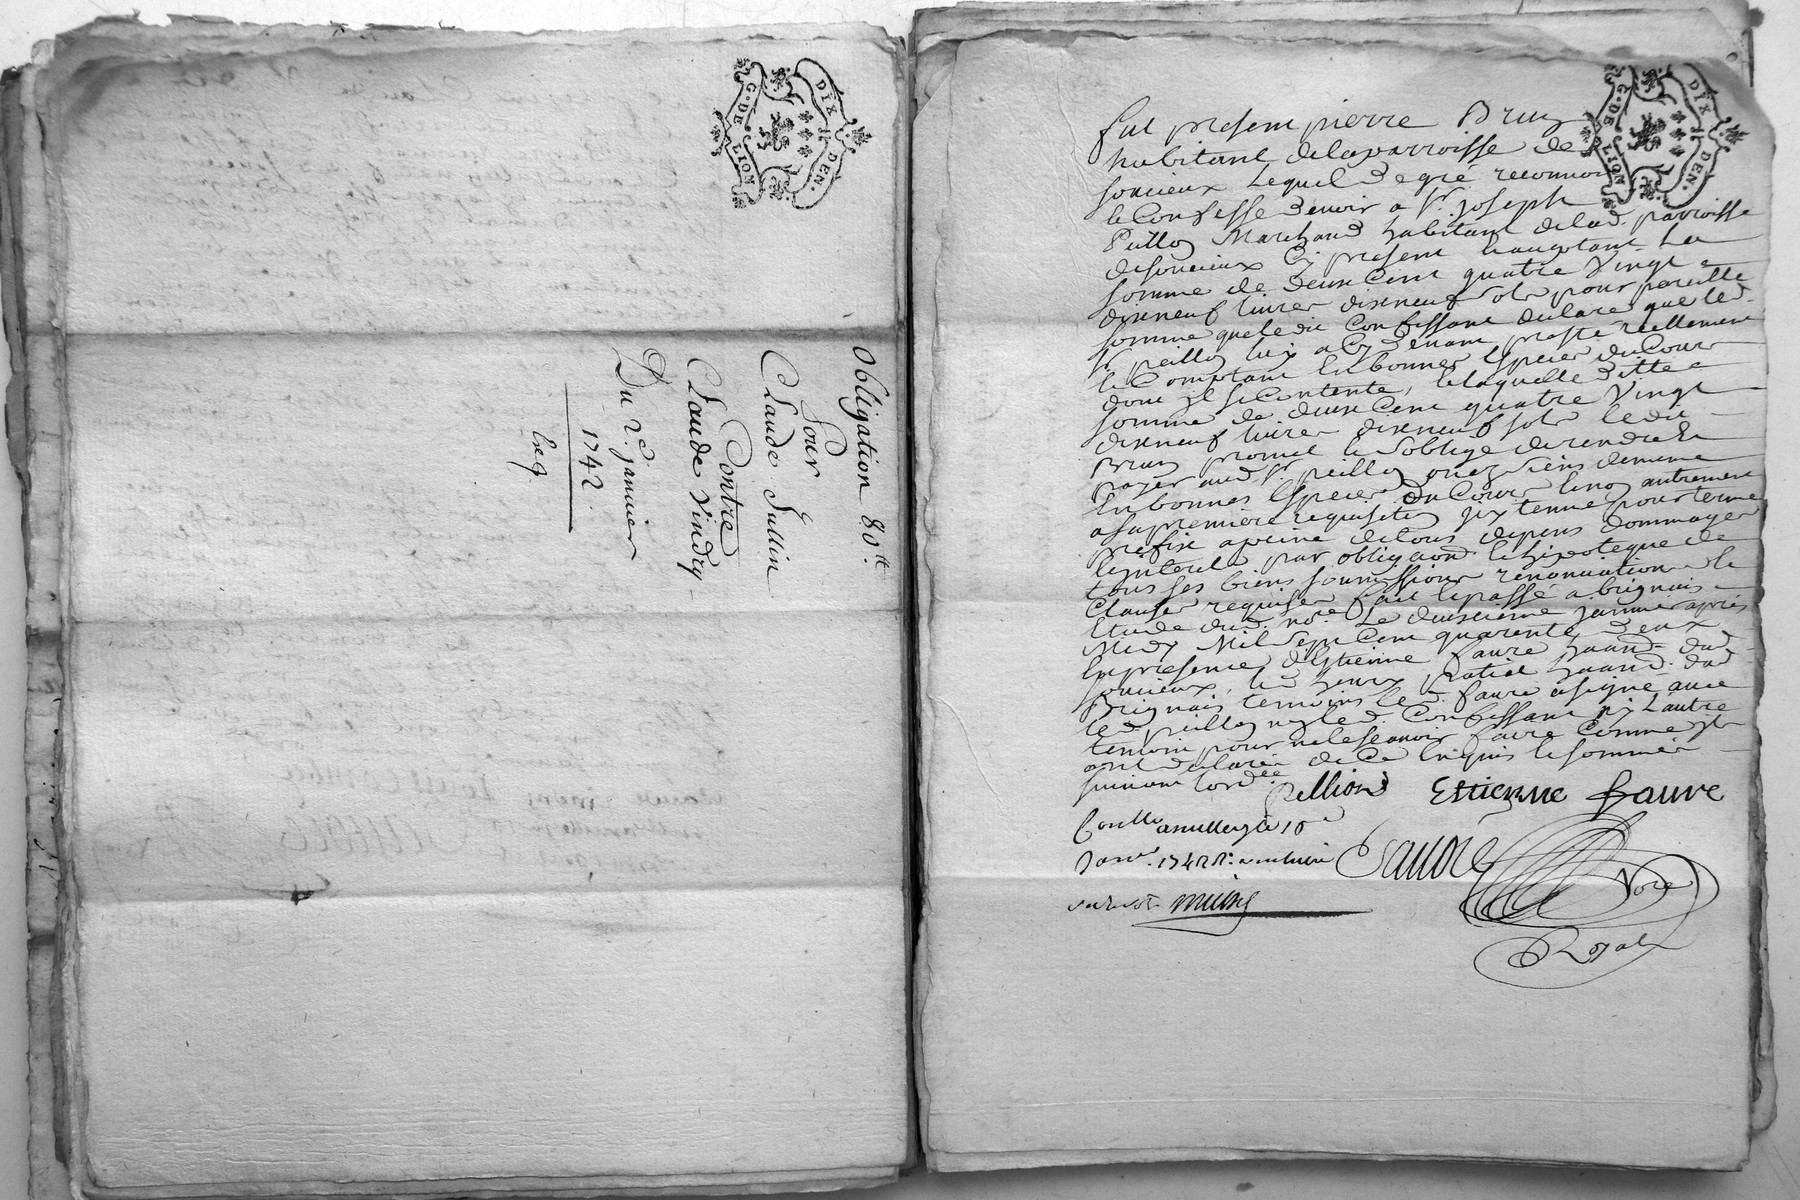 G. DE LION
DIX DEN.
Obligation 80 lt
Pour
Claude Jullin
Contre
Claude Vindry
Du 2e janvier
1742
G. DE LION
DIX DEN.
fut present pierre Brun
habitant delaparroisse de
soucieux Lequel de gré reconnoi
& Confesse devoir a Sr joseph
Marchand habitant delad. parroisse
desoucieux Cy present & acceptant La
somme de deux Cent quatre Vingt
dixneuf livres dixneuf sols pour pareille
somme queledit Confessant declare que led.
Sr peillon luy a Cy devant presté reellement
& Comptant En bonnes Especes du Cours
dont il se Contente, & laquelle ditte
somme de deux Cent quatre Vingt
dixneuf livres dixneuf sols ledit
Brun promet & soblige de rendre &
payer aud. Sr peillon ou ez siens de meme
En bonnes Especes du Cours & non autrement
a sapremiere requisition pour terme
prefix a peine de tous depens dommages
& interets par obligaon. & hipoteque de
tous ses biens soumissions renonciation &
Clauses requises fait & passé a brignais
Etude dud. nore. Le deuxieme janvier apres
Midy Mil sept Cent quarente deux
En presence d'Estienne faure dud.
soucieux, dud.
Brignais temoins led. faure a signé avec
led. peillon ny led. Confessant ny L'autre
temoin pour nele scavoir faire Comme ils
ont declaré de Ce Enquis & sommés
suivant lord.ce
pellion Estienne faure
Conllé 10e
Janv. 1742
Nore
Royal